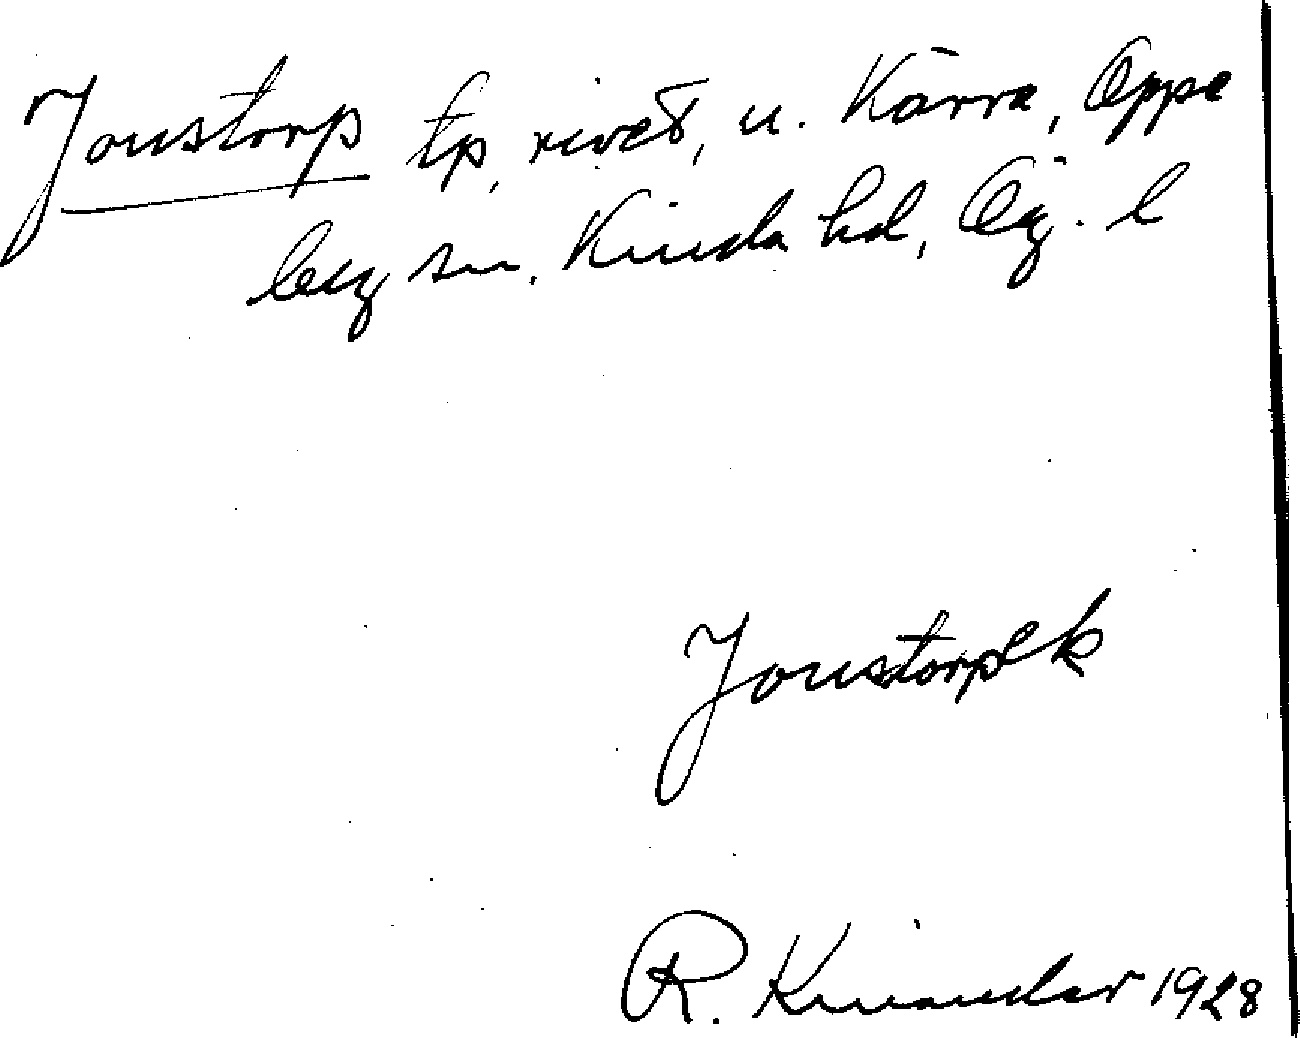 Jonstorp tp, rivet, u. Kärra, Oppe
by sn, Kinda hd, Ög. l
Jonstorpek
R. Kinander 1928